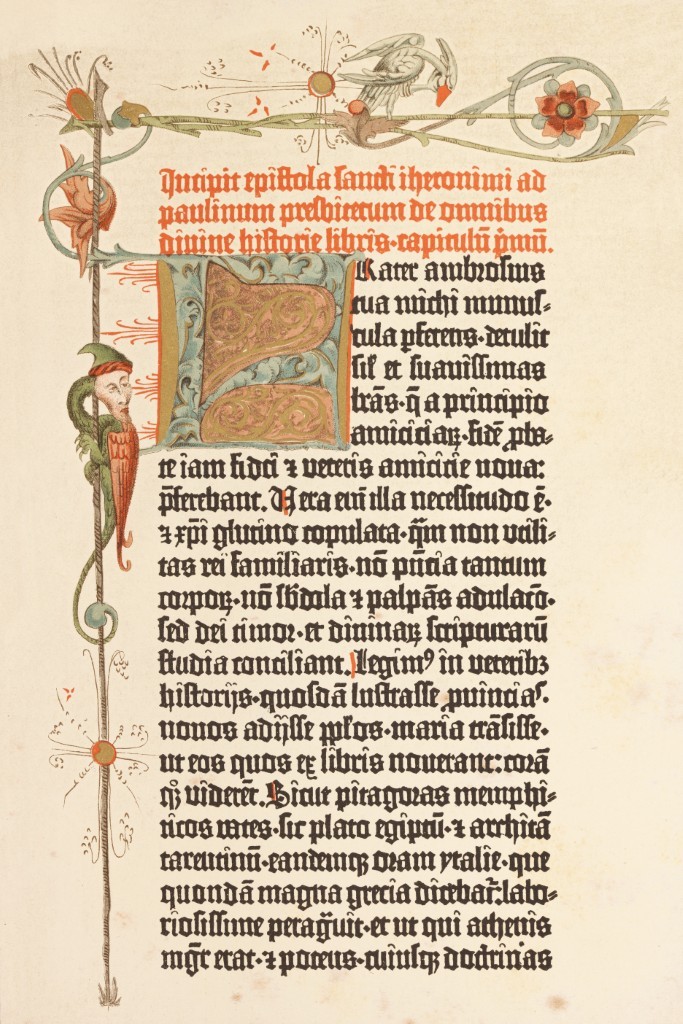 Incipit epistola sancti iheronimi ad
paulinum presbiterum de omnibus
divine historie libris. capitulũ p̃mũ.
Frater ambrosius
tua michi munus-
cula ꝑferens. detulit
sił et suavissimas
lr̃as. q̃ a principio
amiciciaꝝ. fidẽ ꝓba-
te iam fidei ⁊ veteris amicicie nova:
p̃ferebant. Vera eni᷒ illa necessitudo ẽ.
⁊ xp̃i glutino copulata. q̃m non utili-
tas rei familiaris. nõ pñcia tantum
corpoꝝ. nõ sb̃dola ⁊ palpãs adulaco̅.
sed dei timor. et divinaꝝ scripturarũ
studia conciliant. Legimꝰ in veteribꝫ
historijs. quosdã lustrasse ꝓvincias.
novos adijsse ppl̃os. maria trãsisse.
ut eos quos ex libris noverant: corã
qꝫ viderẽt. Sicut pitagoras memphi-
ticos vates. sic plato egiptũ. ⁊ architã
tarentinũ. eandemqꝫ oram ytalie. que
quondã magna grecia dicebat᷑: labo-
riosissime peragͣvit. et ut qui athenis
mgr̃ erat. ⁊ potens. cuiusqꝫ doctrinas